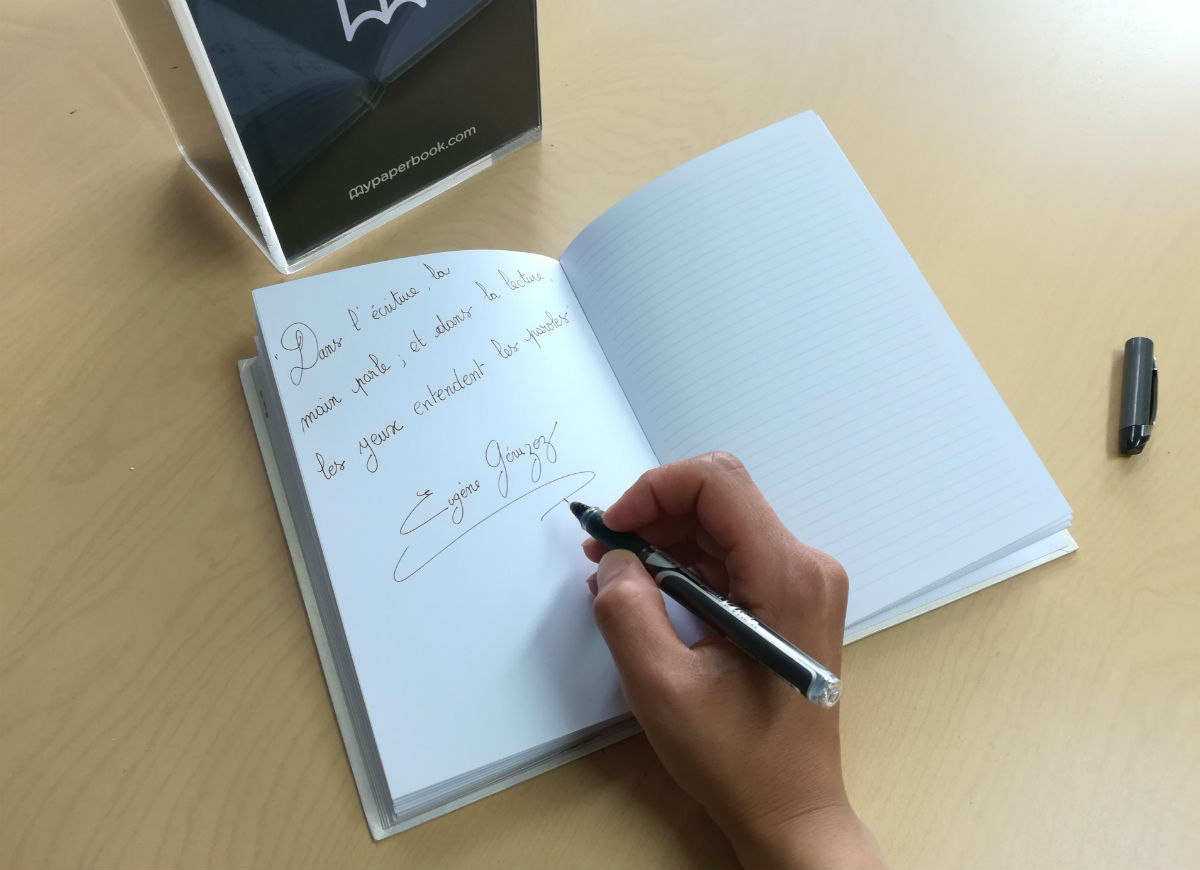 mypaperbook.com
"Dans l'écriture, la
main parle ; et dans la lecture,
les yeux entendent les paroles"
Eugène Géruzez